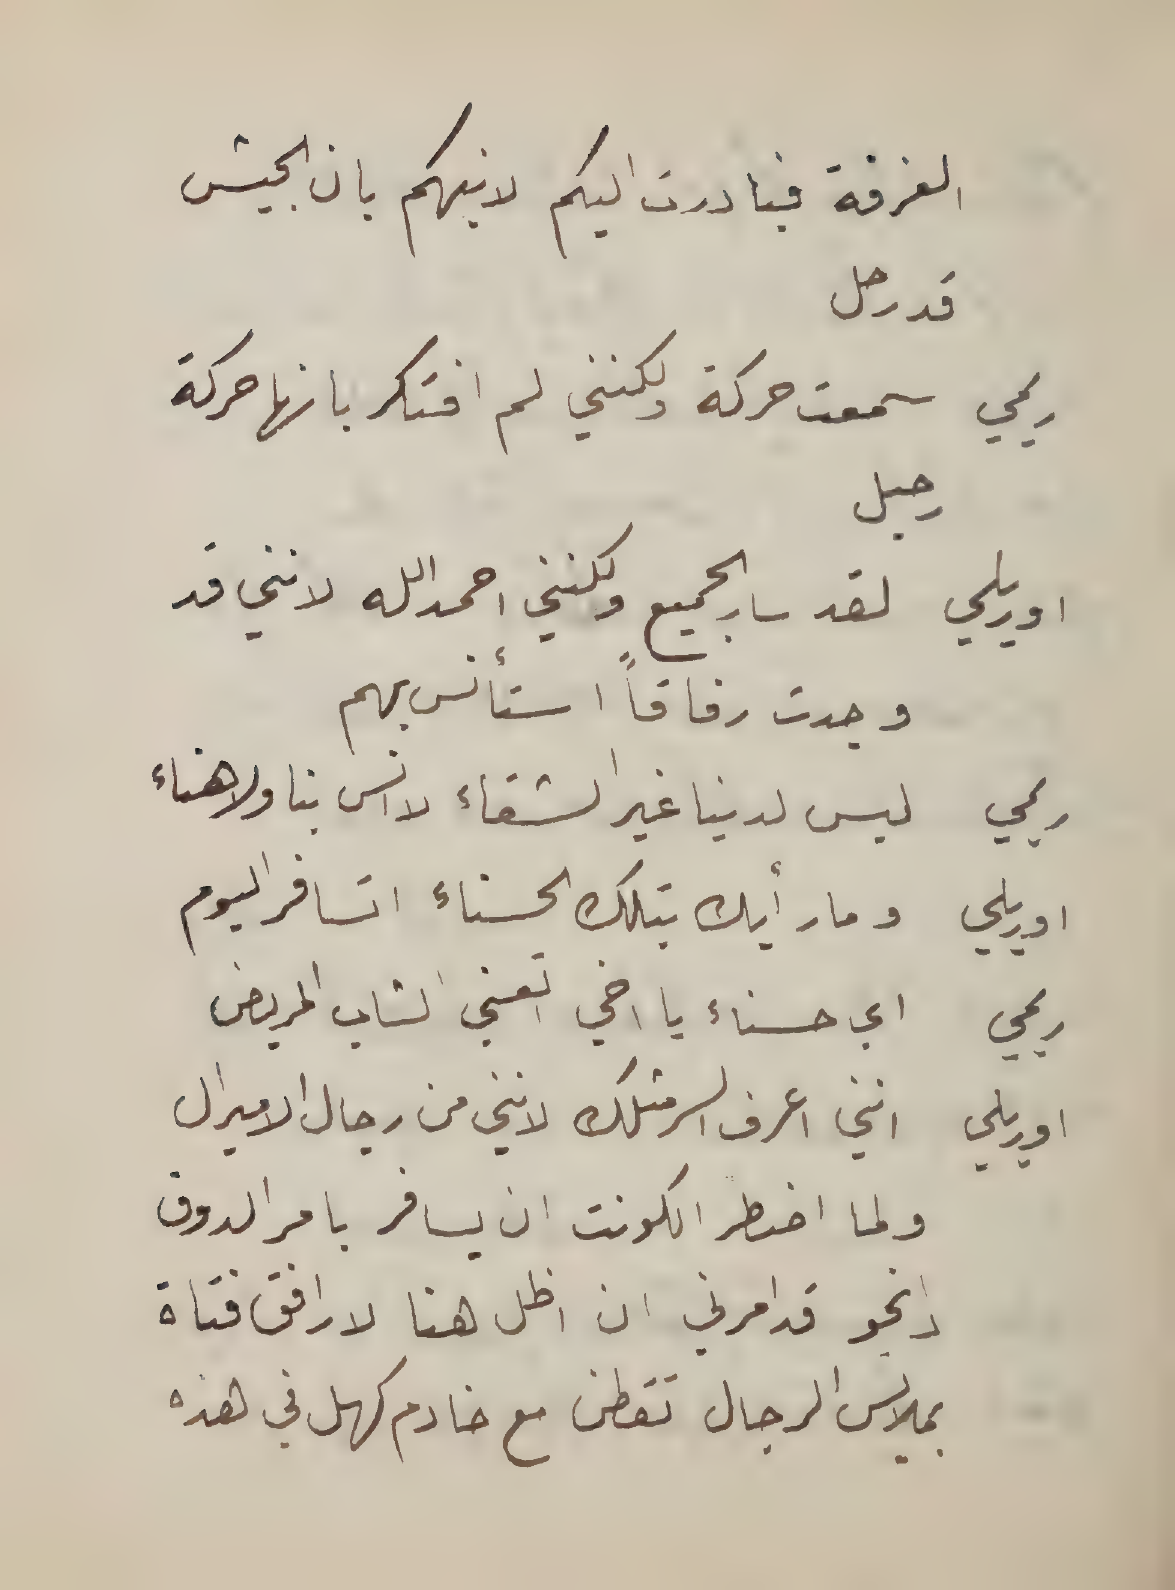 الغرفة فبادرت اليكم لانبهكم بان الجيش
قد رحل
ريمي سمعت حركة ولكنني لم افتكر بانها حركة
رحيل
اوريلي لقد سار الجميع ولكنني احمد الله لانني قد
وجدت رفاقاً استأنس بهم
ريمي ليس لدينا غير الشقاء لا انس بنا ولا هناء
اوريلي وما رأيك بتلك الحسناء اتسافر اليوم
ريمي اي حسناء يا اخي اتعني الشاب المريض
اوريلي انني اعرف السر مثلك لانني من رجال الاميرال
ولما اضطر الكونت ان يسافر بامر الدوق
دانجو قد امرني ان اظل هنا لارافق فتاة
بملابس الرجال تقطن مع خادم كهل في هذه